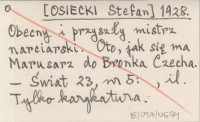 [OSIECKI Stefan] 1928.
Obecny i przyszły mistrz
narciarski. Oto, jak się ma
Marusarz do Bronka Czecha.
— Świat 23, nr 5: , il.
Tylko karykatura.